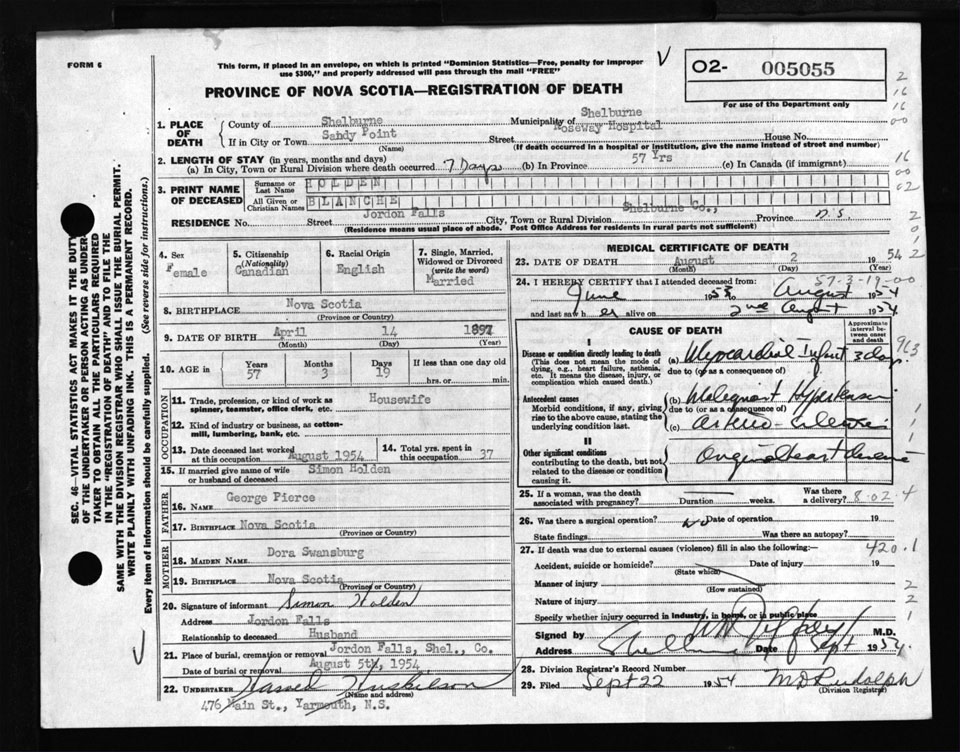 FORM 6
This form, if placed in an envelope, on which is printed "Dominion Statistics—Free, penalty for improper
use $300," and properly addressed will pass through the mail "FREE"
PROVINCE OF NOVA SCOTIA—REGISTRATION OF DEATH
O2- 005055
For use of the Department only
1. PLACE OF DEATH
County of Shelburne Municipality of Shelburne
If in City or Town Sandy Point Street Roseway Hospital House No.
(Name) (If death occurred in a hospital or institution, give the name instead of street and number)
2. LENGTH OF STAY (in years, months and days)
(a) In City, Town or Rural Division where death occurred 7 Days (b) In Province 57 Yrs (c) In Canada (if immigrant)
3. PRINT NAME OF DECEASED
Surname or Last Name HOLDEN
All Given or Christian Names BLANCHE
RESIDENCE No. Street Jordon Falls City, Town or Rural Division Shelburne Co., Province N.S.
(Residence means usual place of abode. Post Office Address for residents in rural parts not sufficient)
4. Sex Female
5. Citizenship (Nationality) Canadian
6. Racial Origin English
7. Single, Married, Widowed or Divorced (write the word) Married
8. BIRTHPLACE Nova Scotia
(Province or Country)
9. DATE OF BIRTH April 14 1897
(Month) (Day) (Year)
10. AGE in Years 57 Months 3 Days 19 If less than one day old hrs. or min.
OCCUPATION
11. Trade, profession, or kind of work as Housewife
spinner, teamster, office clerk, etc.
12. Kind of industry or business, as cotton-
mill, lumbering, bank, etc.
13. Date deceased last worked at this occupation August 1954
14. Total yrs. spent in this occupation 37
15. If married give name of wife or husband of deceased Simon Holden
FATHER
16. NAME George Pierce
17. BIRTHPLACE Nova Scotia
(Province or Country)
MOTHER
18. MAIDEN NAME Dora Swansburg
19. BIRTHPLACE Nova Scotia
(Province or Country)
20. Signature of informant Simon Holden
Address Jordon Falls
Relationship to deceased Husband
21. Place of burial, cremation or removal Jordon Falls, Shel., Co.
Date of burial or removal August 5th, 1954
22. UNDERTAKER Huskilson
(Name and address)
476 Main St., Yarmouth, N.S.
MEDICAL CERTIFICATE OF DEATH
23. DATE OF DEATH August 2 1954
(Month) (Day) (Year)
57-3-19-00
24. I HEREBY CERTIFY that I attended deceased from:
June 1953 to August 1954
and last saw her alive on 2nd August 1954
CAUSE OF DEATH
Approximate interval between onset and death
I
Disease or condition directly leading to death
(This does not mean the mode of dying, e.g., heart failure, asthenia, etc. It means the disease, injury, or complication which caused death.)
(a) Myocardial Infarct 3 days
due to (or as a consequence of)
Antecedent causes
Morbid conditions, if any, giving rise to the above cause, stating the underlying condition last.
(b) Malignant Hypertension
due to (or as a consequence of)
(c) Arterio-sclerosis
II
Other significant conditions
contributing to the death, but not related to the disease or condition causing it.
25. If a woman, was the death associated with pregnancy? Duration weeks. Was there a delivery? 8.02.4
26. Was there a surgical operation? No Date of operation 19
State findings Was there an autopsy?
27. If death was due to external causes (violence) fill in also the following:— 420.1
Accident, suicide or homicide? Date of injury 19
(State which)
Manner of injury
(How sustained)
Nature of injury
Specify whether injury occurred in industry, in home, or in public place
Signed by M.D.
Address Shelburne Date Sept 1954.
28. Division Registrar's Record Number
29. Filed Sept 22 1954 M D Rudolph
(Division Registrar)
SEC. 46—VITAL STATISTICS ACT MAKES IT THE DUTY
OF THE UNDERTAKER OR PERSON ACTING AS UNDER-
TAKER TO OBTAIN ALL THE PARTICULARS REQUIRED
IN THE "REGISTRATION OF DEATH" AND TO FILE THE
SAME WITH THE DIVISION REGISTRAR WHO SHALL ISSUE THE BURIAL PERMIT.
WRITE PLAINLY WITH UNFADING INK. THIS IS A PERMANENT RECORD.
Every item of information should be carefully supplied. (See reverse side for instructions.)